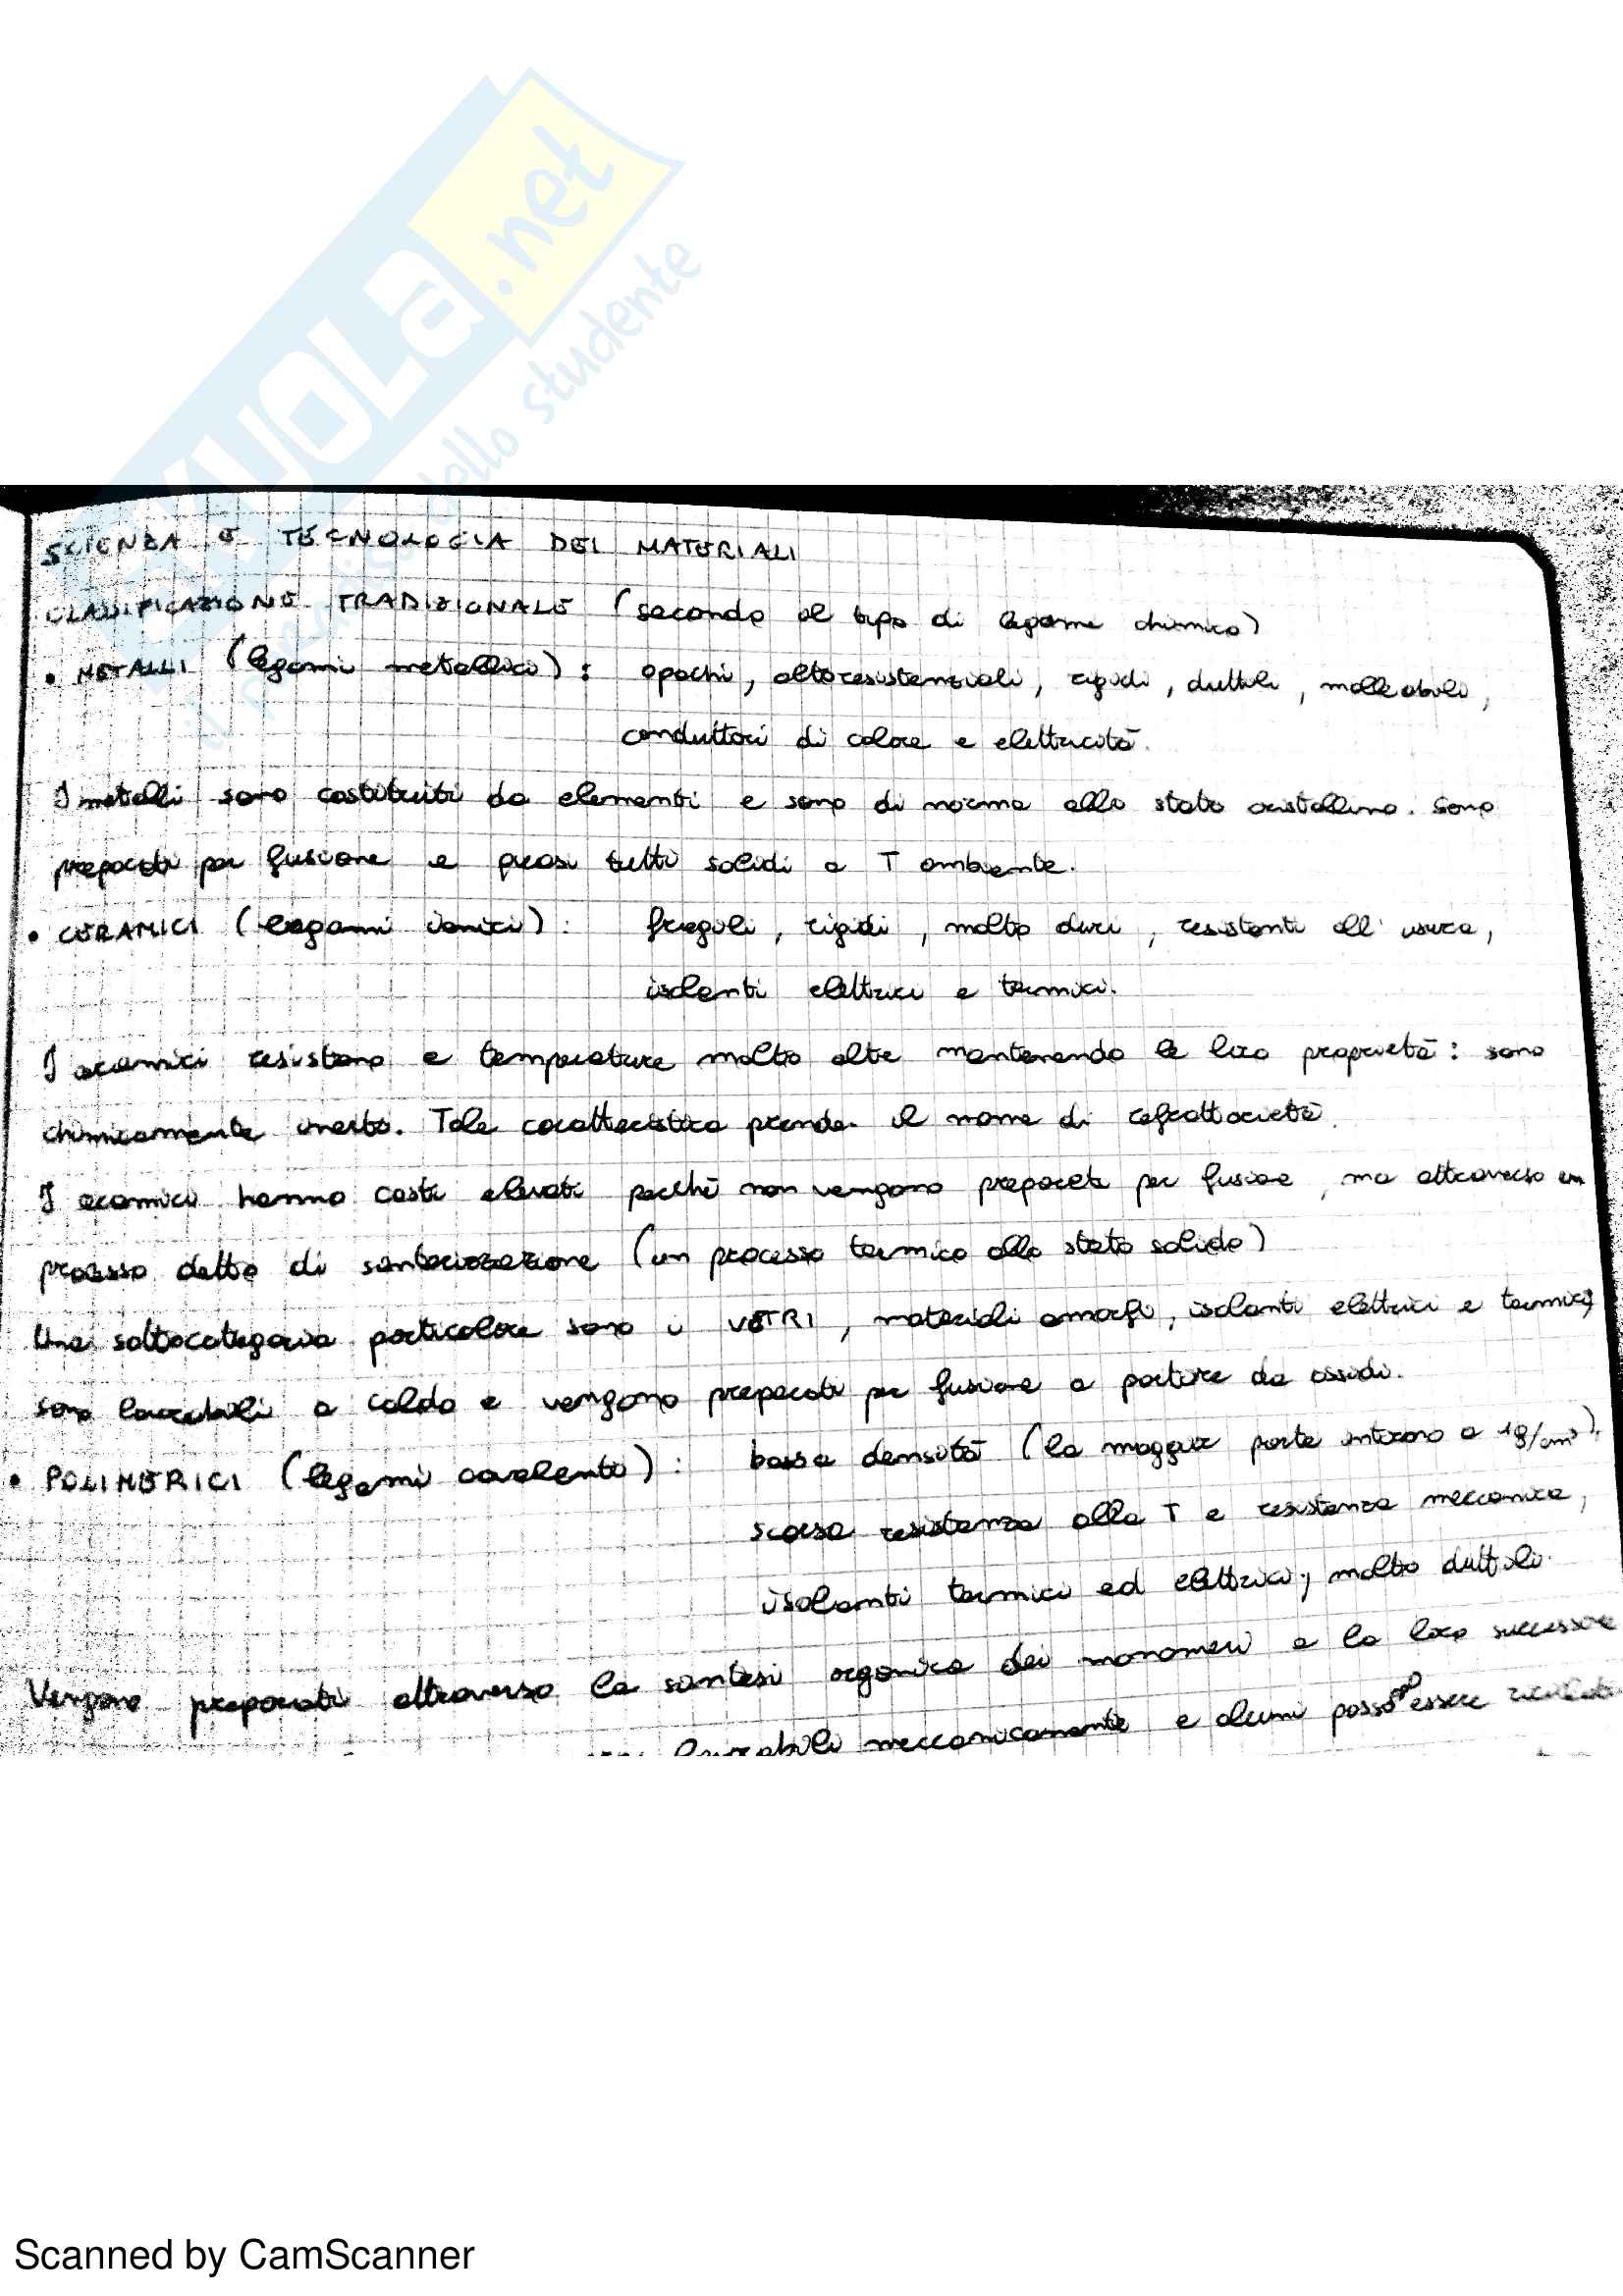 SKUOLA.net
il paradiso dello studente
SCIENZA E TECNOLOGIA DEI MATERIALI
CLASSIFICAZIONE TRADIZIONALE (secondo il tipo di legame chimico)
• METALLI (legami metallici): opachi, altoresistenziali, rigidi, duttili, malleabili,
conduttori di calore e elettricità.
I metalli sono costituiti da elementi e sono di norma allo stato cristallino. Sono
preparati per fusione e quasi tutti solidi a T ambiente.
• CERAMICI (legami ionici): fragili, rigidi, molto duri, resistenti all'usura,
isolanti elettrici e termici.
I ceramici resistono a temperature molto alte mantenendo le loro proprietà: sono
chimicamente inerti. Tale caratteristica prende il nome di refrattarietà.
I ceramici hanno costi elevati perché non vengono preparati per fusione, ma attraverso un
processo detto di sinterizzazione (un processo termico allo stato solido)
Una sottocategoria particolare sono i VETRI, materiali amorfi, isolanti elettrici e termici,
sono lavorabili a caldo e vengono preparati per fusione a partire da ossidi.
• POLIMERICI (legami covalenti): bassa densità (la maggior parte intorno a 1g/cm³),
scarsa resistenza alla T e resistenza meccanica,
isolanti termici ed elettrici, molto duttili.
Vengono preparati attraverso la sintesi organica dei monomeri e la loro successiva
lavorabili meccanicamente e alcuni possono essere riciclati
Scanned by CamScanner